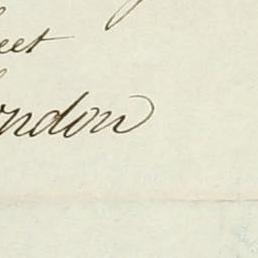 eet
ondon